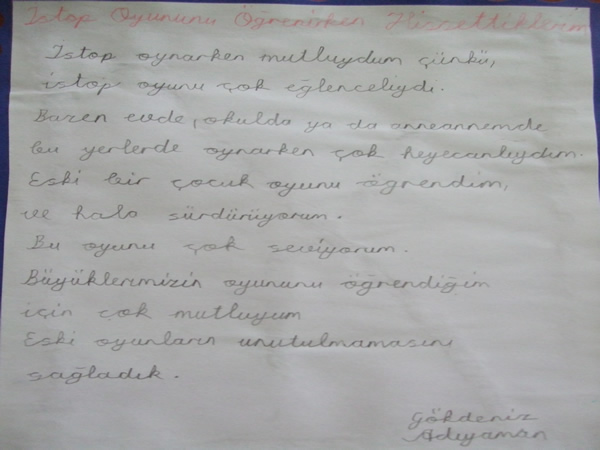 İstop Oyununu Öğrenirken Hissettiklerim
İstop oynarken mutluydum çünkü,
istop oyunu çok eğlenceliydi.
Bazen evde, okulda ya da anneannemde
bu yerlerde oynarken çok heyecanlıydım.
Eski bir çocuk oyunu öğrendim,
ve hala sürdürüyorum.
Bu oyunu çok seviyorum.
Büyüklerimizin oyununu öğrendiğim
için çok mutluyum
Eski oyunların unutulmamasını
sağladık.
Gökdeniz
Adıyaman